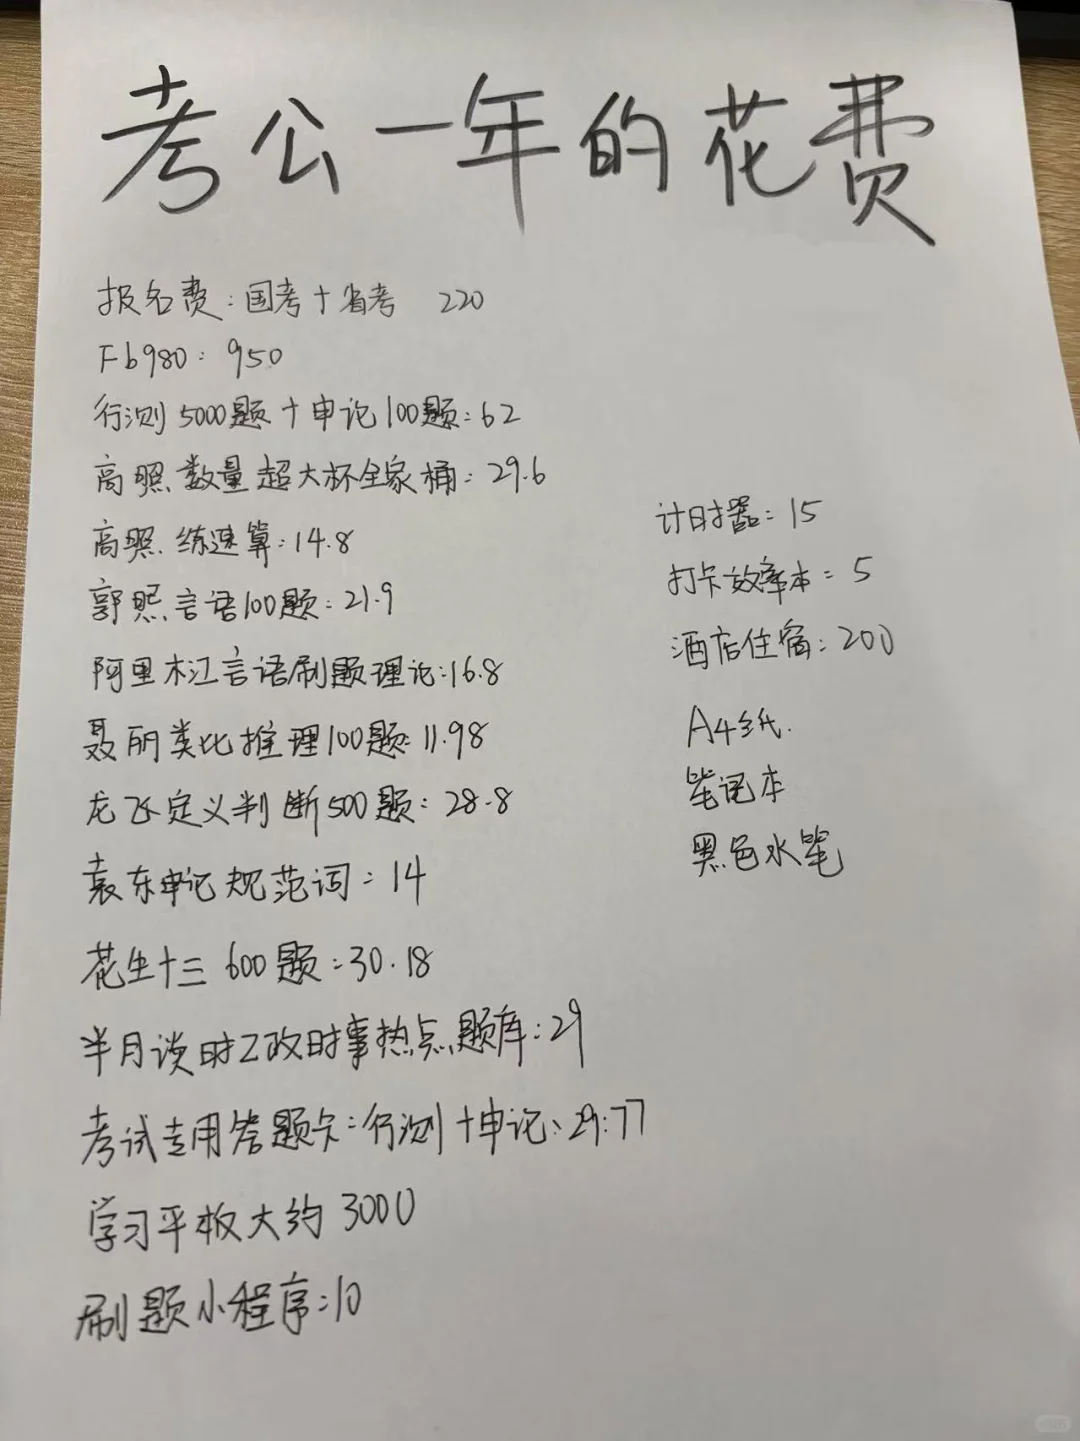 考公一年的花费
报名费：国考+省考 220
Fb980：950
行测5000题+申论100题：62
高照数量超大杯全家桶：29.6
高照练速算：14.8
郭熙言语100题：21.9
阿里木江言语刷题理论：16.8
聂丽类比推理100题：11.98
龙飞定义判断500题：28.8
袁东申论规范词：14
花生十三600题：30.18
半月谈时政时事热点题库：29
考试专用答题卡：行测+申论：29.77
学习平板大约3000
刷题小程序：10
计时器：15
打卡效率本：5
酒店住宿：200
A4纸
笔记本
黑色水笔